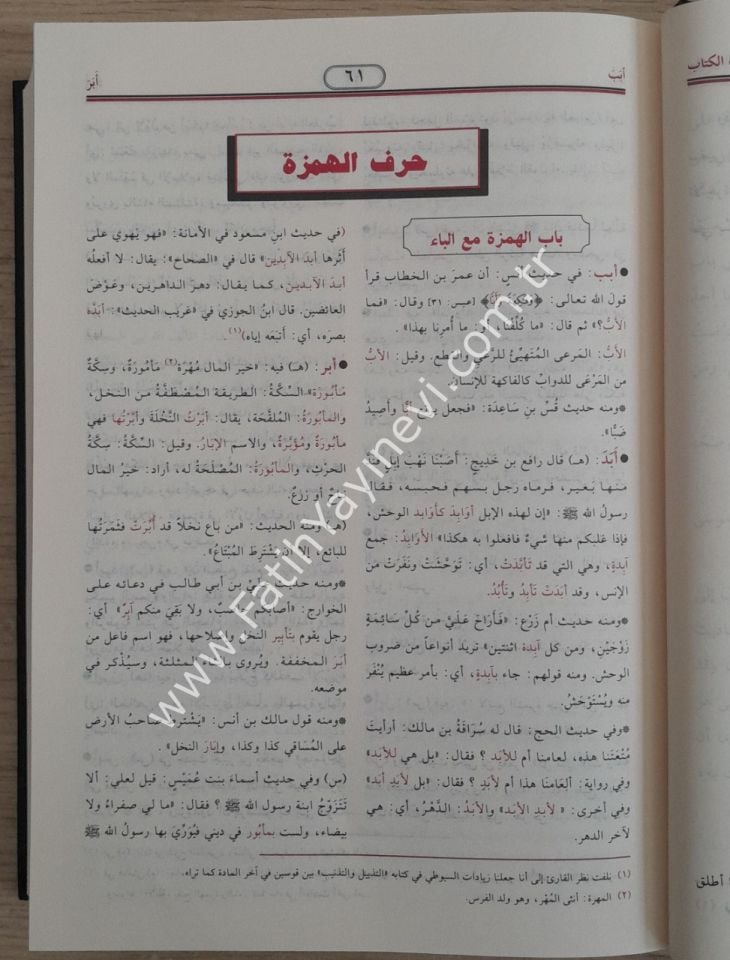 أبَبَ
٦١
أَبَرَ
حرف الهمزة
باب الهمزة مع الباء
● أبب: في حديث أنس: أن عمر بن الخطاب قرأ
قولَ الله تعالى: ﴿وَفَاكِهَةً وَأَبًّا﴾ [عبس: ٣١] وقال: «فما
الأَبُّ؟» ثم قال: «ما كُلِّفْنا، أو: ما أُمِرنا بهذا».
الأَبُّ: المرعى المُتَهيِّئُ للرَّعي والقطع. وقيل: الأَبُّ
من المَرْعَى للدوابِّ كالفاكهة للإنسان.
● ومنه حديث قُس بن سَاعِدَة: «فجعل يرتع أبًّا وأَصِيدُ
ضَبًّا».
● أَبَدَ: (هـ) قال رافع بن خَدِيج: أَصَبْنا نَهْبَ إبلٍ فنَدَّ
منها بَعير، فرماه رجل بسهم فحبسه، فقال
رسولُ الله ﷺ: «إن لهذه الإبل أَوَابِدَ كأَوَابِدِ الوحش،
فإذا غلبكم منها شيءٌ فافعلوا به هكذا» الأَوَابِدُ: جمع
آبِدةٍ، وهي التي قد تَأَبَّدَتْ، أي: تَوَحَّشَتْ ونَفَرَتْ من
الإنس، وقد أَبَدَتْ تَأْبِدُ وتَأْبُدُ.
● ومنه حديث أم زَرْع: «فَأَرَاحَ عَلَيَّ من كُلِّ سَائِمَةٍ
زَوْجَيْنِ، ومن كل آبِدة اثنتين» تريد أنواعاً من ضروب
الوحش. ومنه قولهم: جاء بآبِدةٍ، أي: بأمر عظيم يُنْفَر
منه ويُسْتَوْحَشُ.
● وفي حديث الحج: قال له سُرَاقَةُ بن مالك: أرأيتَ
مُتْعَتَنا هذه، لعامنا أم للأَبَد؟ فقال: «بل هي للأَبَد»
وفي رواية: أَلِعَامِنا هذا أم لأَبَدٍ؟ فقال: «بل لأَبَدِ أَبَدٍ»
وفي أخرى: «لأَبَدِ الأَبَد» والأَبَدُ: الدَّهْرُ، أي: هي
لآخر الدهر.
(في حديث ابن مسعود في الأمانة: «فهو يَهوي على
أَثَرها أبدَ الآبِدِين» قال في «الصحاح»: يقال: لا أفعلُه
أبدَ الآبدين، كما يقال: دهرَ الداهرين، وعَوْضَ
العائضين. قال ابن الجوزي في «غريب الحديث»: أَبَدَّه
بصره، أي: أتبَعَه إياه)(١).
● أبر: (هـ) فيه: «خيرُ المال مُهْرَة(٢) مَأْمُورَةٌ، وسِكَّةٌ
مَأْبُورَة» السِّكَّةُ: الطريقة المُصْطَفَّةُ من النخل،
والمأبُورَةُ: المُلَقَّحَة، يقال: أَبَرْتُ النَّخْلَةَ وأَبَّرْتُها فهي
مأبُورَةٌ ومُؤَبَّرَةٌ، والاسم الإبَارُ. وقيل: السِّكَّةُ: سِكَّةُ
الحَرْث، والمأبُورَةُ: المُصْلَحَةُ له، أراد: خَيرُ المال
نِتَاجٌ أو زَرْعٌ.
(هـ) ومنه الحديث: «من باع نخلاً قد أُبِّرَتْ فثَمَرَتُها
للبائع، إلا أن يَشْتَرِطَ المُبْتَاعُ».
● ومنه حديث علي بن أبي طالب في دعائه على
الخوارج: «أصابكم حاصِبٌ، ولا بَقِيَ منكم آبِرٌ» أي:
رجل يقوم بتأْبِير النخل وإصلاحها، فهو اسم فاعل من
أَبَرَ المخففة. ويُروى بالثاء المثلثة، وسيُذكر في
موضعه.
● ومنه قول مالك بن أنس: «يَشْتَرِطُ صَاحبُ الأرض
على المُسَاقي كذا وكذا، وإبَارَ النخل».
(س) وفي حديث أسماءَ بنت عُمَيْسٍ: قيل لعلي: ألا
تَتَزَوَّجُ ابنة رسول الله ﷺ؟ فقال: «ما لي صفراءُ ولا
بيضاء، ولست بمأبُور في ديني فيُوَرِّيَ بها رسولُ الله ﷺ
(١) يلفت نظر القارئ إلى أنا جعلنا زيادات السيوطي في كتابه «التذييل والتذنيب» بين قوسين في آخر المادة كما تراه.
(٢) المهرة: أنثى المُهْر، وهو ولد الفرس.
الكتاب
أطلق
www.FatihYayinevi.com.tr